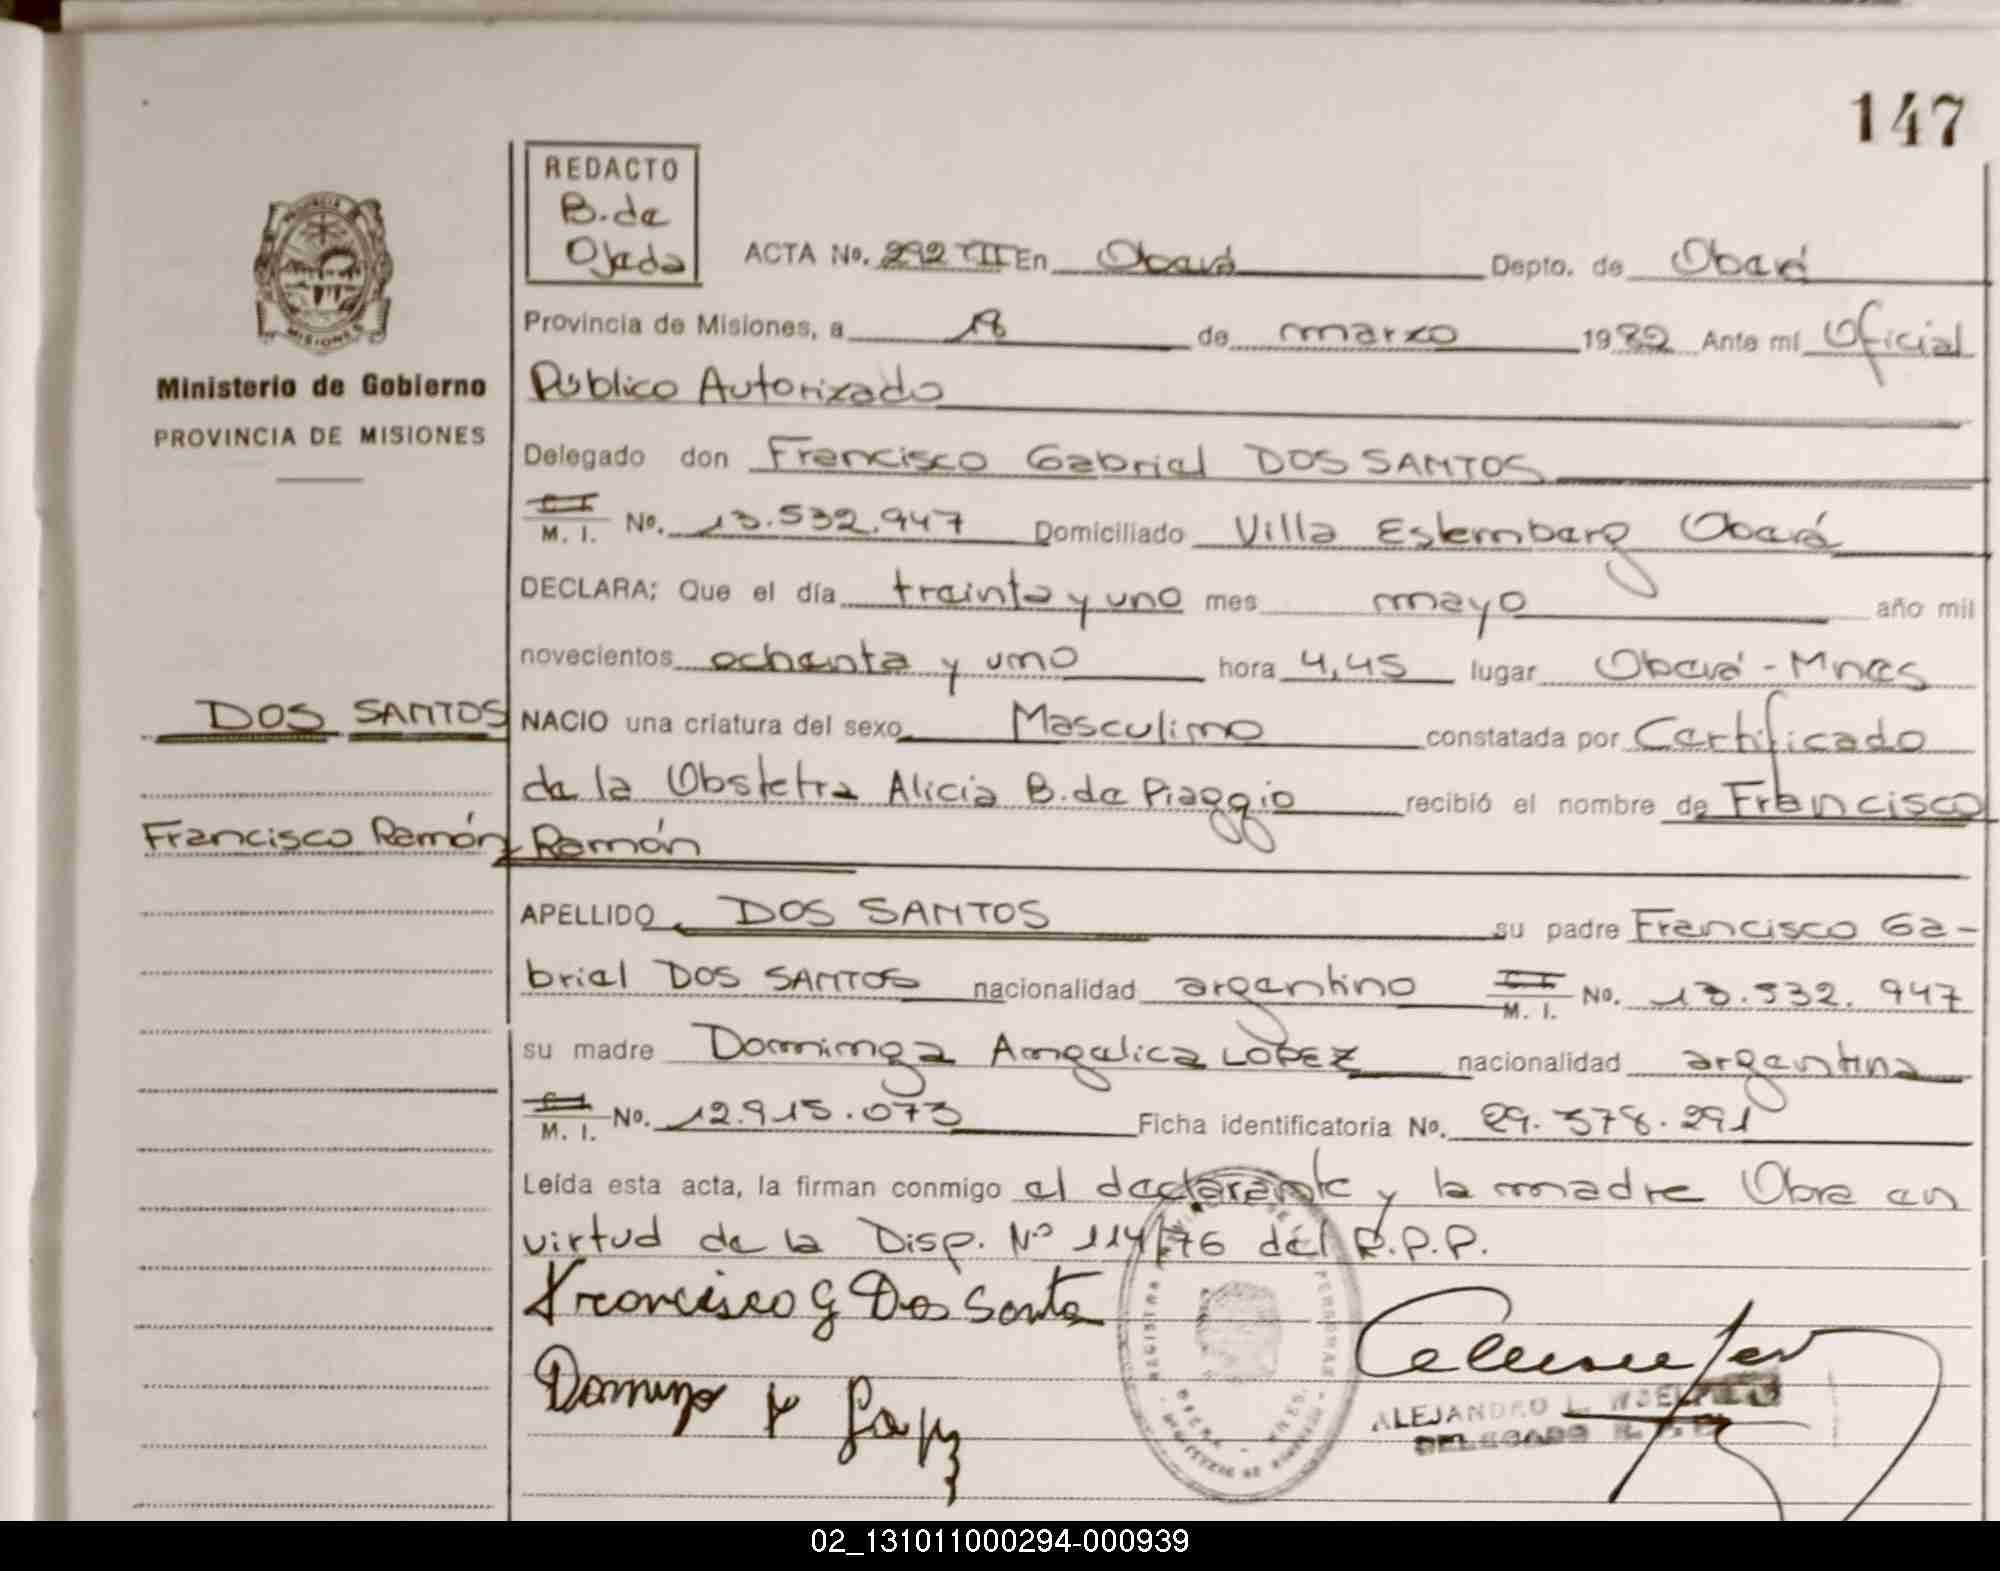 147
REDACTO
B. de
Ojeda
ACTA No. 292 TII En Oberá Depto. de Oberá
Provincia de Misiones, a 18 de marzo 1982 Ante mí Oficial
Ministerio de Gobierno
PROVINCIA DE MISIONES
Público Autorizado
Delegado don Francisco Gabriel DOS SANTOS
M. I. No. 13.532.947 Domiciliado Villa Eslemberg Oberá
DECLARA; Que el día treinta y uno mes mayo año mil
novecientos ochenta y uno hora 4,45 lugar Oberá - Mnes
DOS SANTOS
NACIO una criatura del sexo Masculino constatada por Certificado
de la Obstetra Alicia B. de Piaggio recibió el nombre de Francisco
Francisco Ramón
Ramón
APELLIDO DOS SANTOS su padre Francisco Ga-
briel DOS SANTOS nacionalidad argentino M. I. No. 13.532.947
su madre Dominga Angelica LOPEZ nacionalidad argentina
M. I. No. 12.915.073 Ficha identificatoria No. 29.378.291
Leída esta acta, la firman conmigo el declarante y la madre Obra en
virtud de la Disp. Nº 114/76 del R.P.P.
Francisco G Dos Santo
Doming A Lopez
ALEJANDRO L.
DELEGADO R. P.
02_131011000294-000939